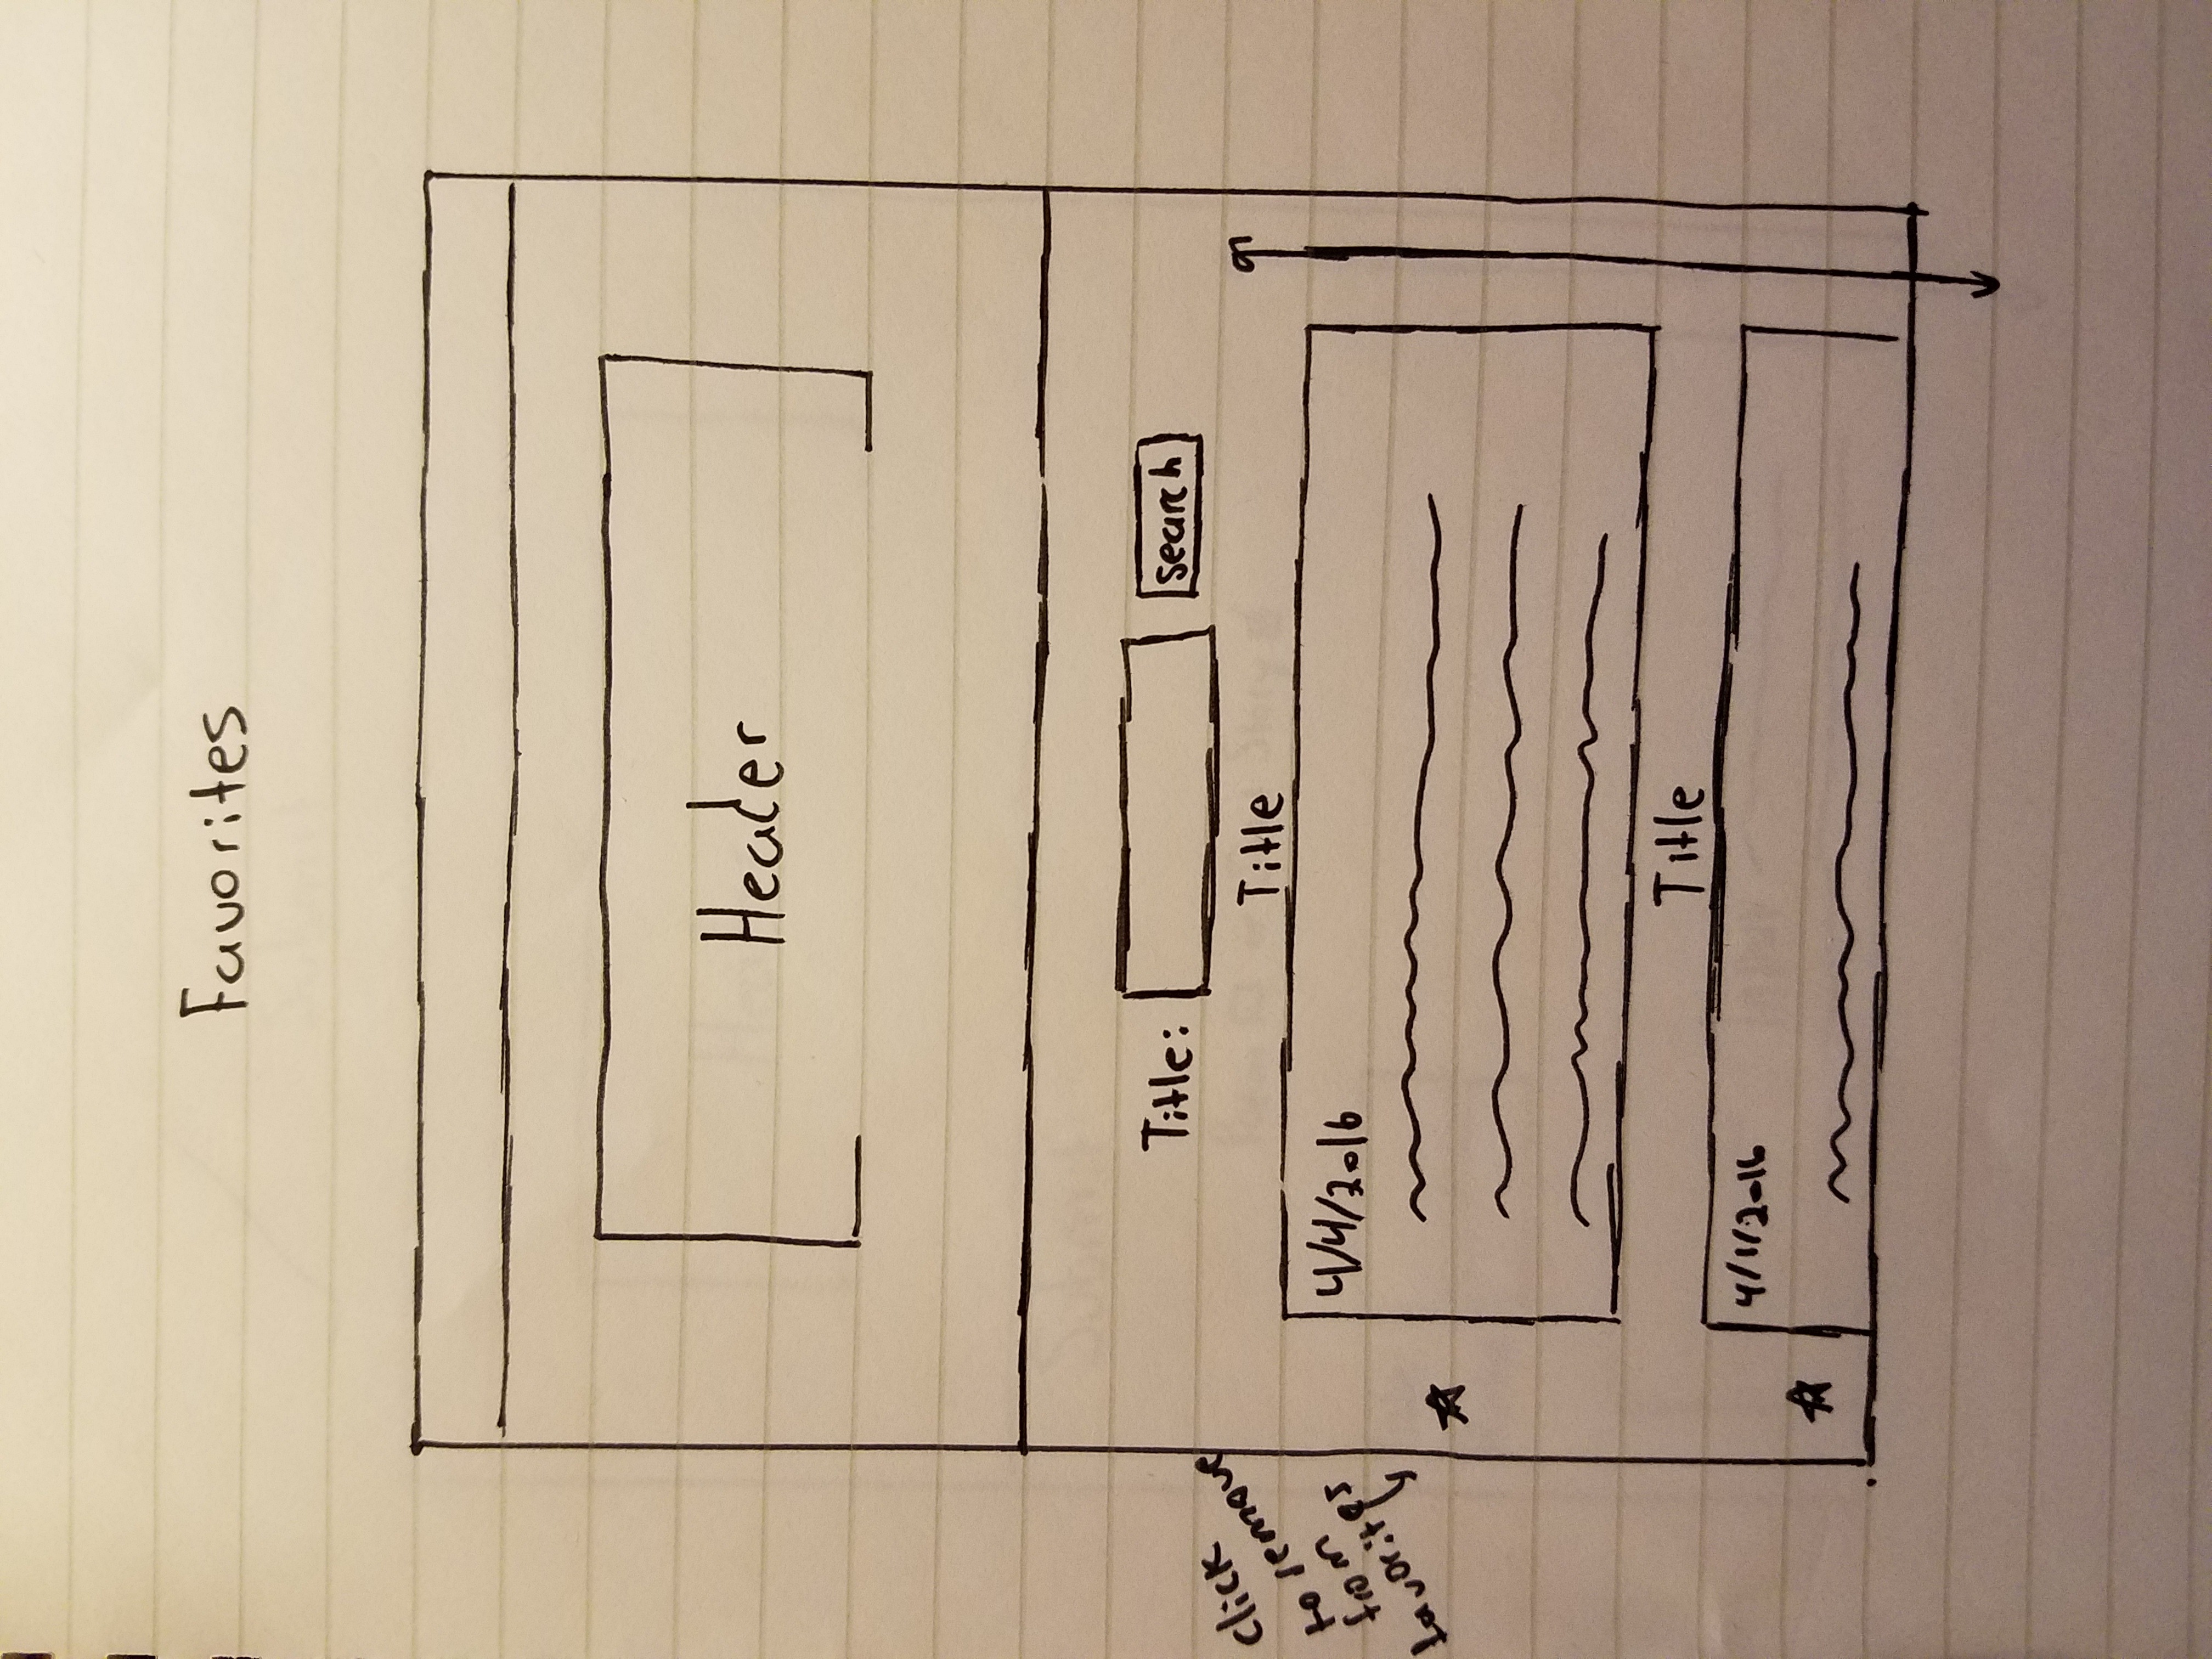 Favorites
Header
Title:
search
click
to remove
from
favorites
Title
4/4/2016
Title
4/1/2016